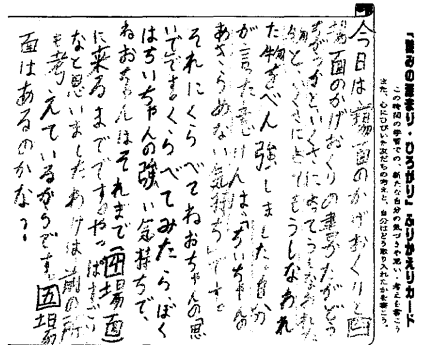 「読みの深まり・ひろがり」ふりかえりカード
この時間の学習での、新たな自分の気づきや思い、考えを書こう。
また、心にひびいた友だちの考えと、自分はどう取り入れたかを書こう。
今日は一場面のかげおくりと四
場面のかげおくりの
た物をべん強しました。自分
が言った意けんは、「ちいちゃんの
あきらめない気持ち」ですと
それにくらべてねおちゃんの思
いです。くらべてみたらぼく
はちいちゃんの強い気持ちで、
ねおちゃんはそれまで(四場面)
に来るまでですやっぱすごい
なと思いましたわけは前の所
も考えているからです。五場
面はあるのかな?